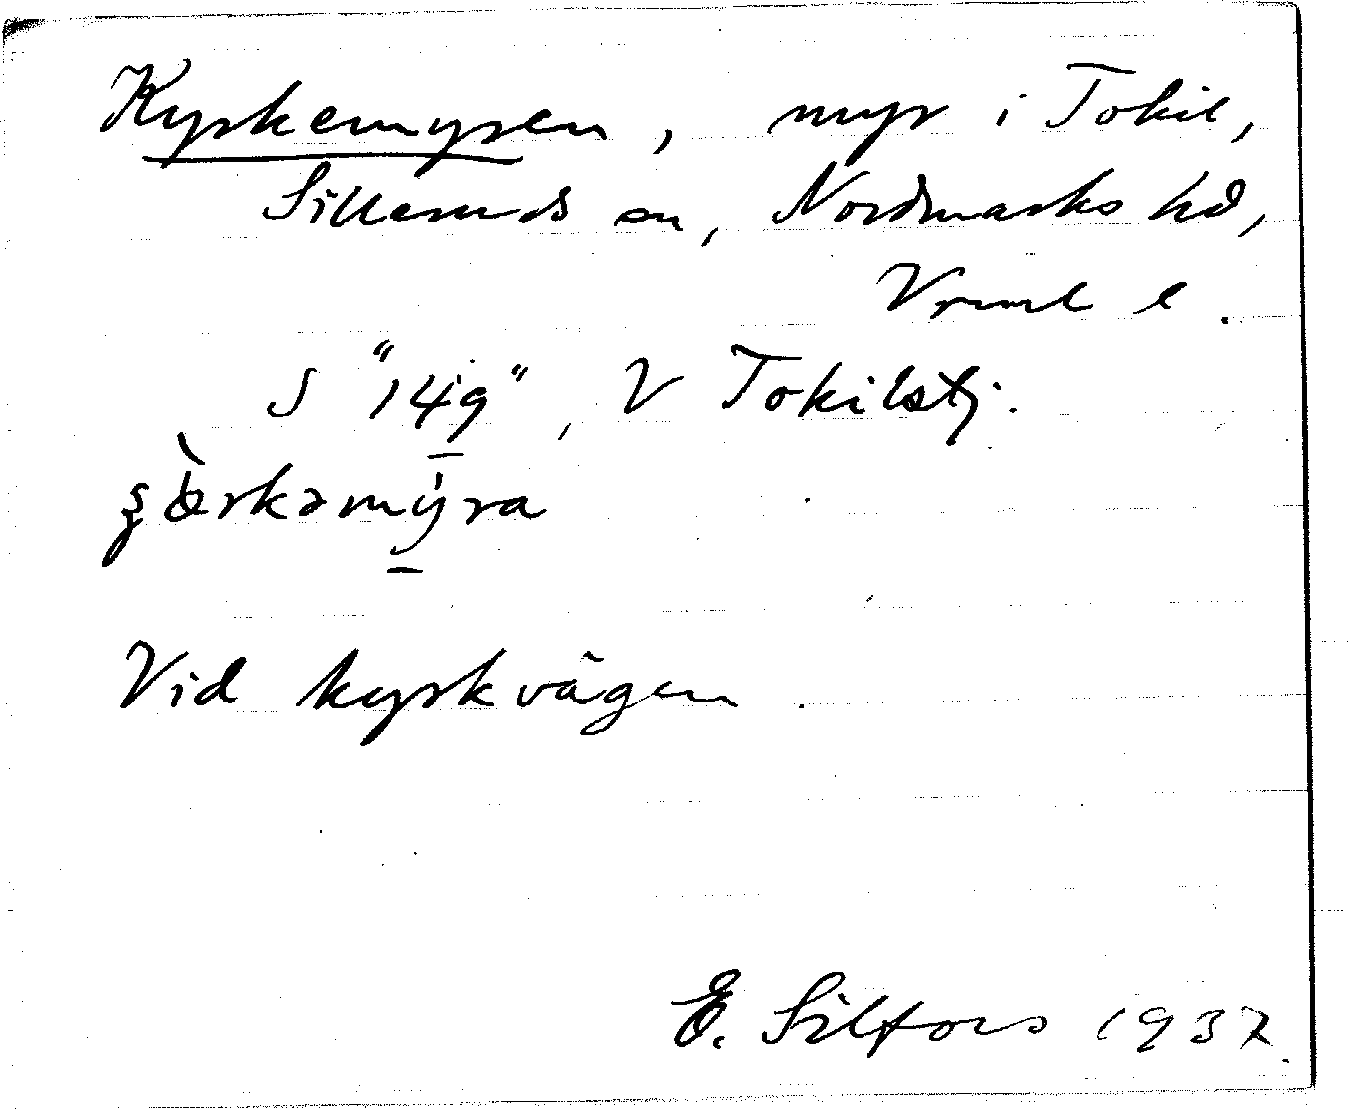 Kyrkemyren, myr i Tokil,
Silleruds sn, Nordmarks hd,
Vrml l.
S "149", V Tokilstj.
Vid kyrkvägen.
E. Silfors 1937.